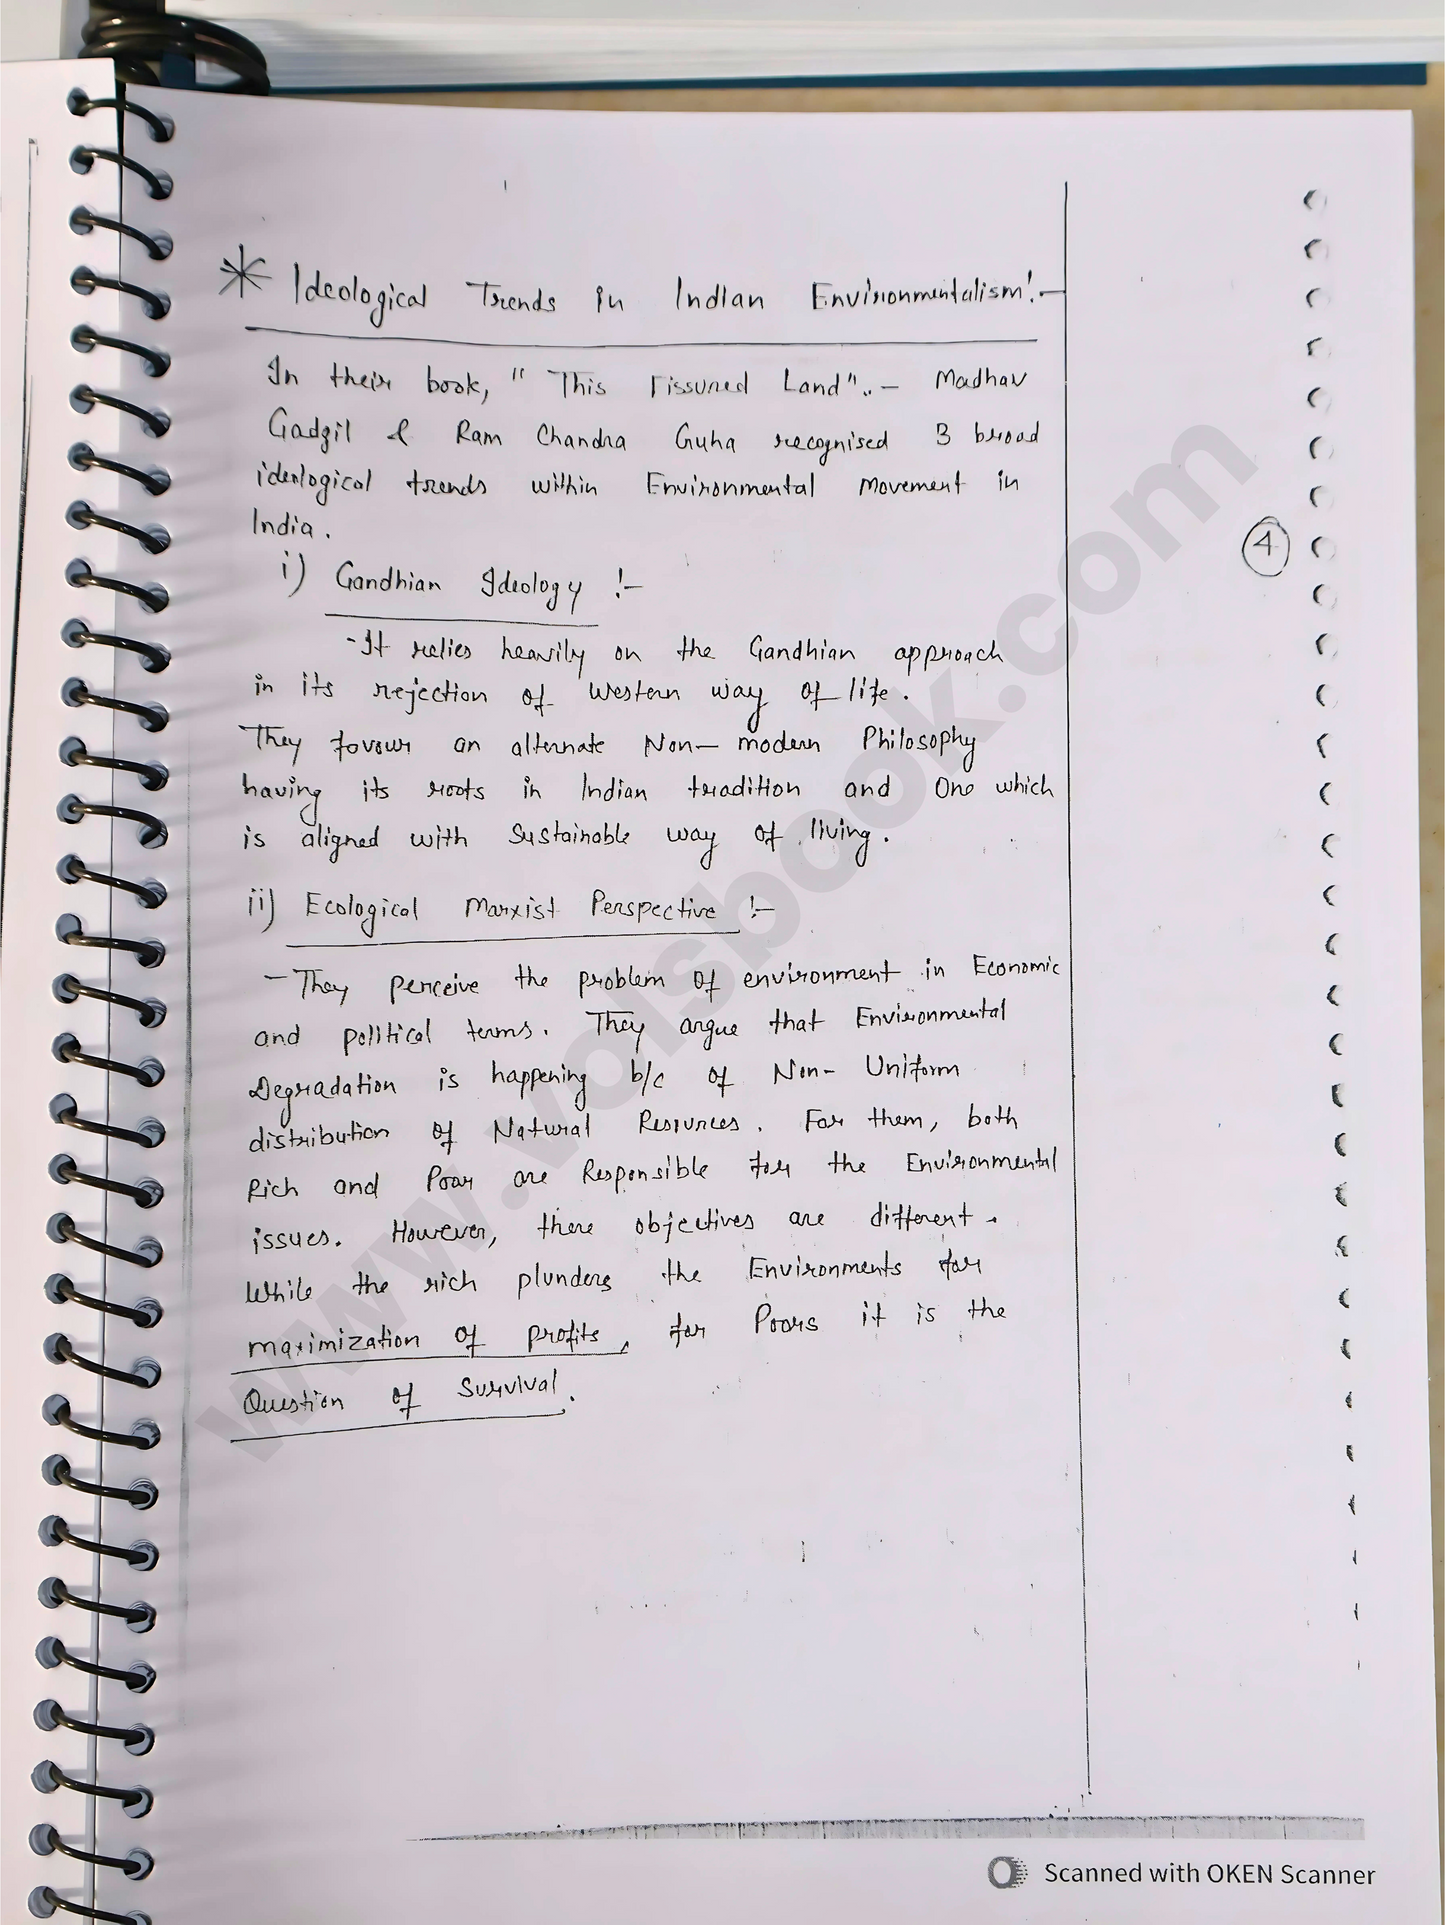 * Ideological Trends in Indian Environmentalism:-
In their book, "This Fissured Land".. - Madhav
Gadgil & Ram Chandra Guha recognised 3 broad
ideological trends within Environmental Movement in
India.
4
i) Gandhian Ideology :-
-It relies heavily on the Gandhian approach
in its rejection of Western way of life.
They favour an alternate Non-modern Philosophy
having its roots in Indian tradition and One which
is aligned with Sustainable way of living.
ii) Ecological Marxist Perspective :-
- They perceive the problem of environment in Economic
and political terms. They argue that Environmental
Degradation is happening b/c of Non-Uniform
distribution of Natural Resources. For them, both
Rich and Poor are Responsible for the Environmental
issues. However, there objectives are different.
While the rich plunders the Environments for
maximization of profits, for Poors it is the
Question of Survival.
www.volsbook.com
Scanned with OKEN Scanner